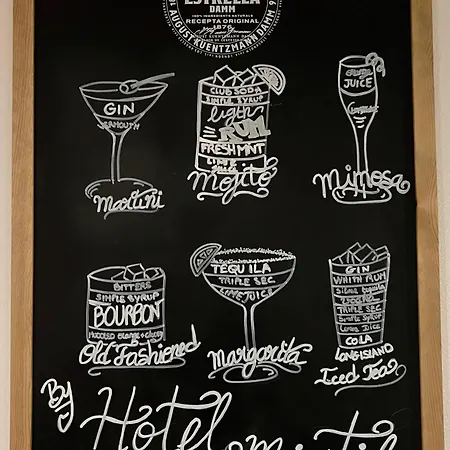 ESTRELLA
DAMM
100% INGREDIENTS NATURALS
RECEPTA ORIGINAL
1876
AUGUST KUENTZMANN DAMM
GIN
Martini
CLUB SODA
SIMPLE SYRUP
light
RUM
FRESH MINT
LIME
Mojito
JUICE
Mimosa
BITTERS
SIMPLE SYRUP
BOURBON
Old Fashioned
TEQUILA
TRIPLE SEC
LIME JUICE
Margarita
GIN
WHITH RUM
Silver tequila
VODKA
TRIPLE SEC
Simple Syrup
Lemon Juice
COLA
LONG ISLAND
Iced Tea
By
Hotel